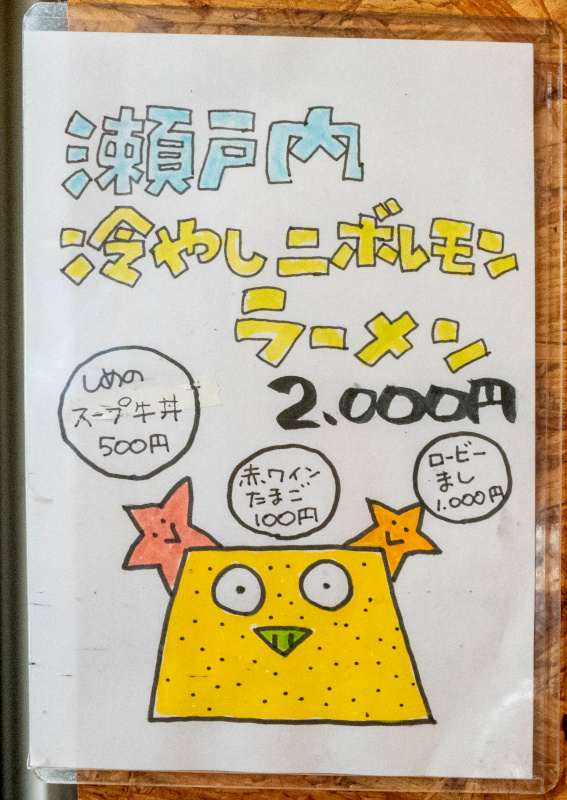 瀬戸内
冷やしニボレモン
ラーメン
2.000円
しめの
スープ牛丼
500円
赤ワイン
たまご
100円
ロービー
まし
1.000円